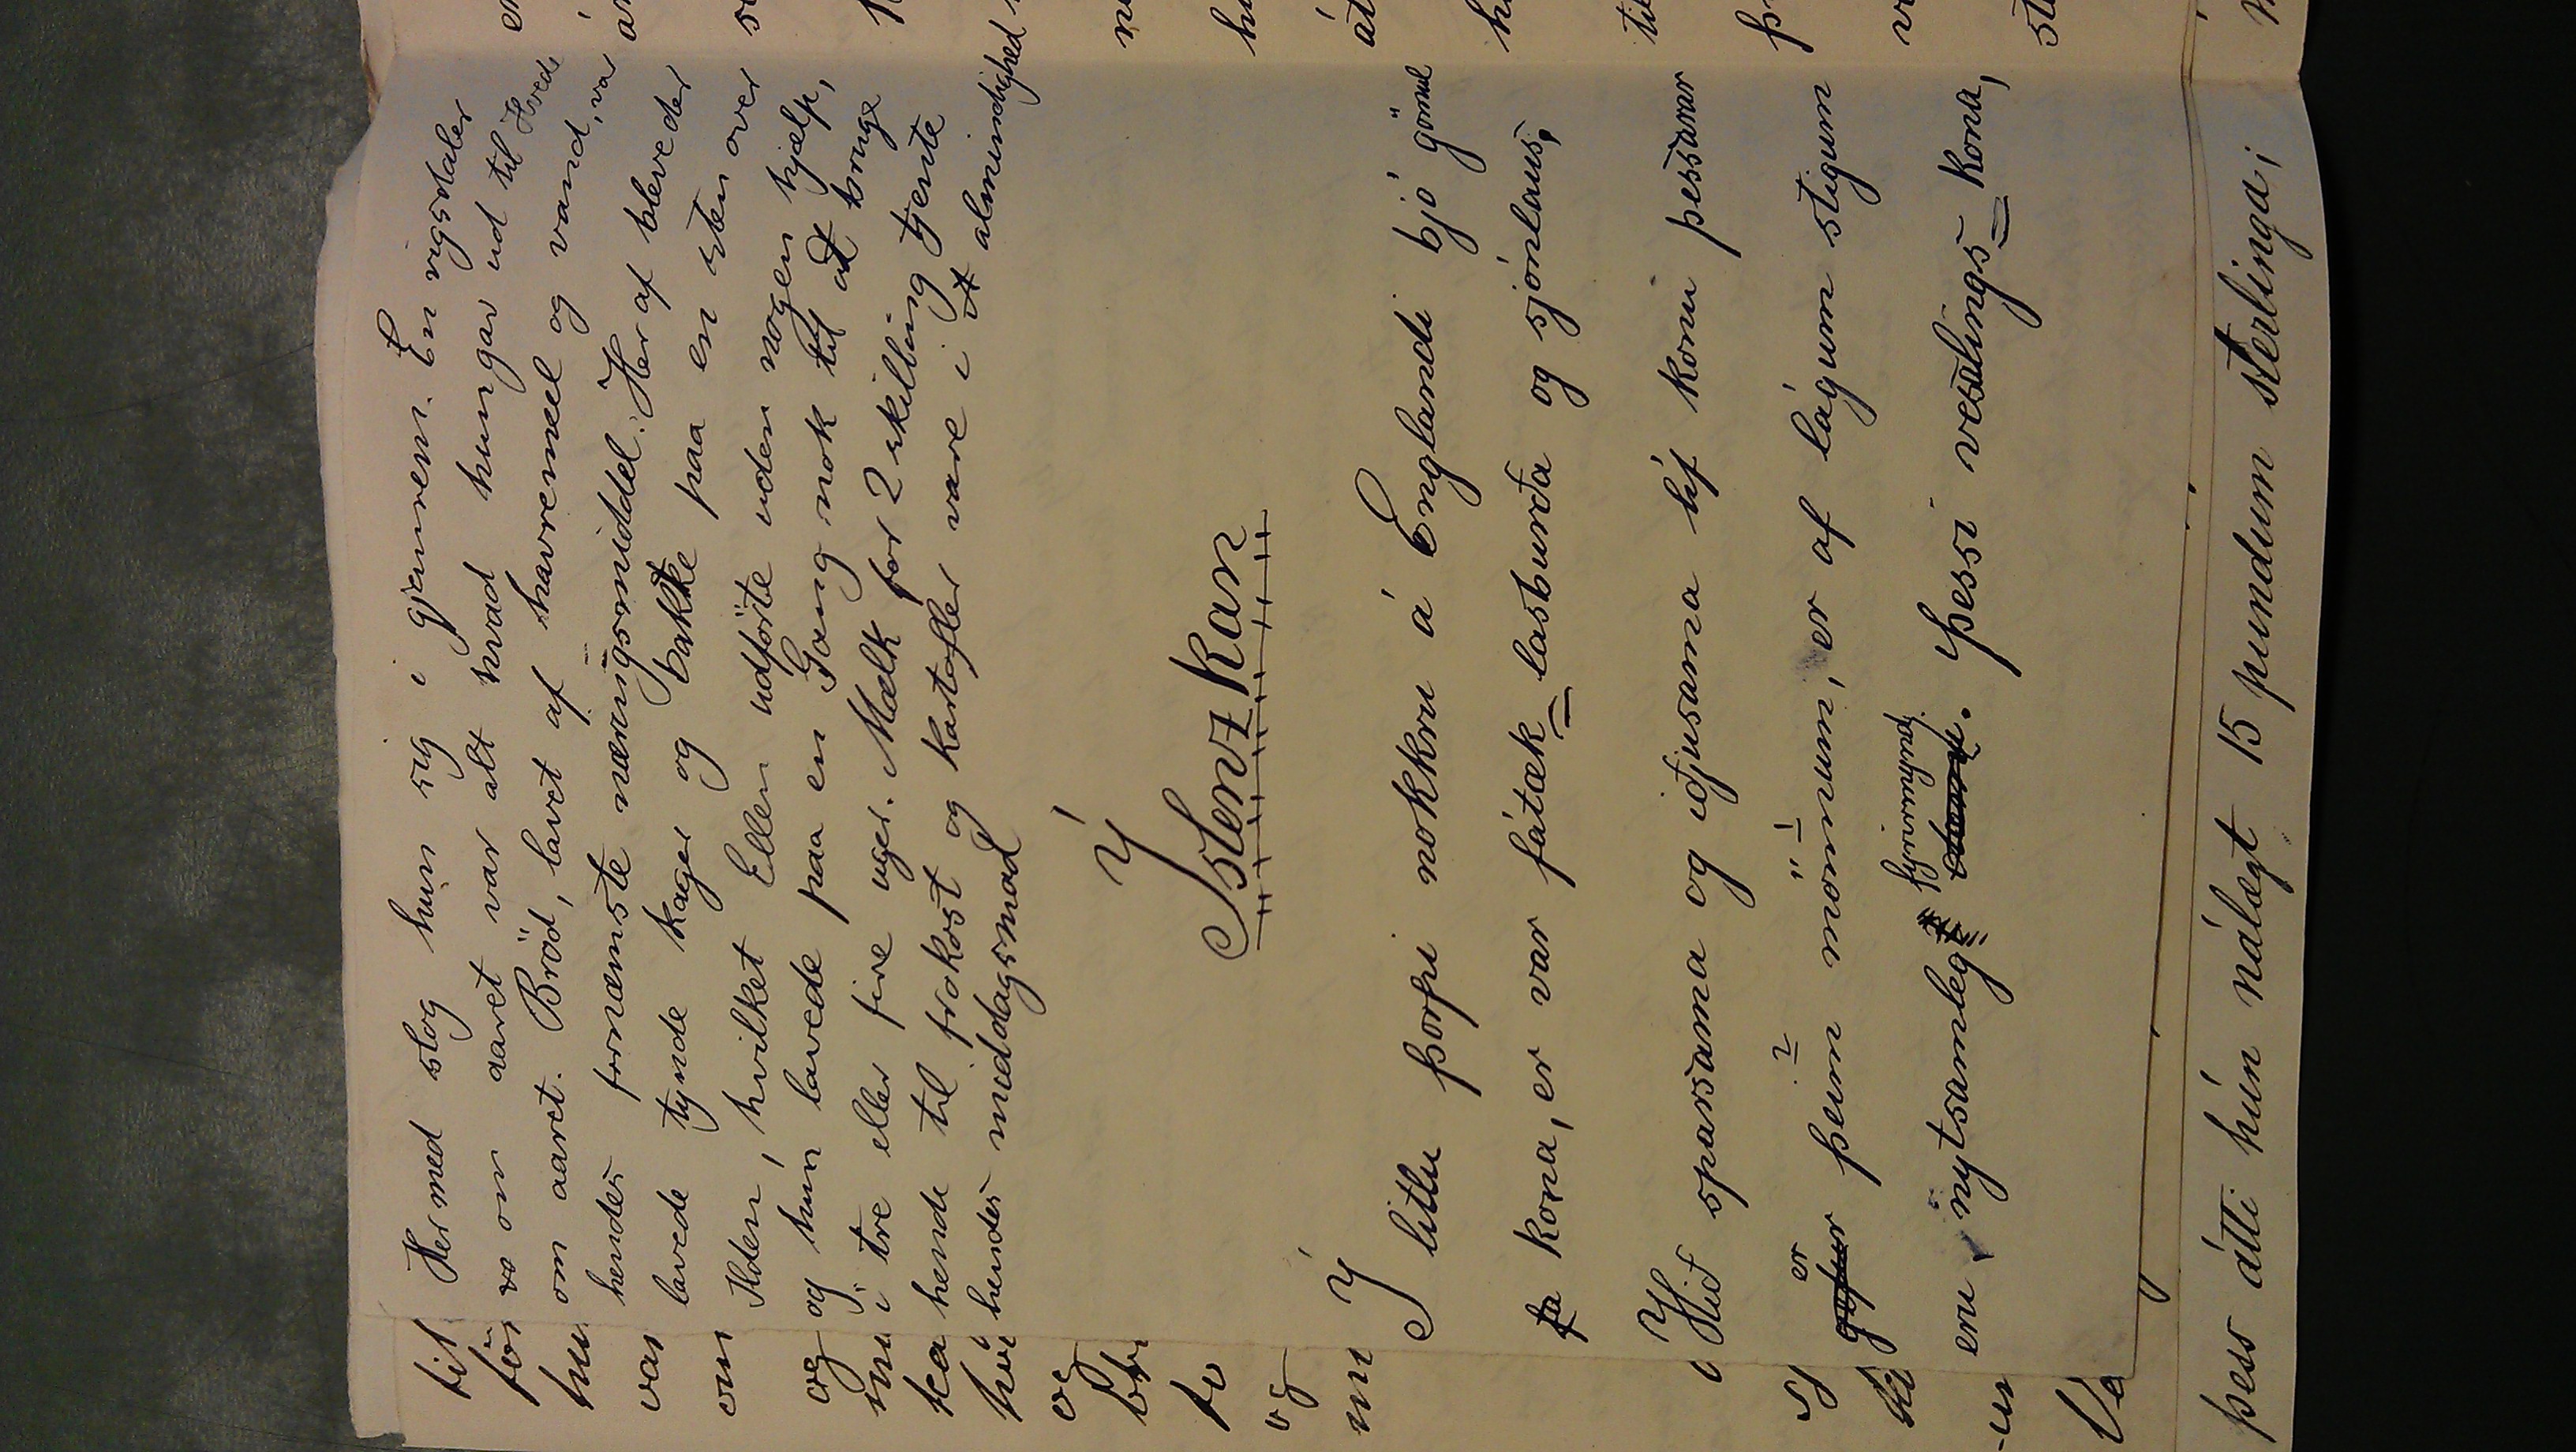 Hermed slog hun sig i gjennem. En rigsdaler
om aaret var alt hvad hungav ud til Hvede
om aaret. Bröd, lavet af havremeel og vand, var
hendes fornæmste næringsmiddel. Her af blev der
lavede tynde kager og bakke paa en sten over
Ilden, hvilket Ellen udförte uden nogen hjælp,
og hun lavede paa en Gang nok til at bruge
i tre eller fire uger. Mælk for 2 skilling tjente
hende til frokost og kartofler vare i almindighed
hendes middagsmad
Íslenzkan
Í litlu þorpi nokkru á Englandi bjó gömul
kona, er var fátæk lasburða og sjónlaus,
Hið sparsama og iðjusama líf konu þessarar
er þeim mönnum, er af lágum stigum
eru nytsamleg fyrirmynd. Þessi veslings-kona,
þess átti hún nálægt 15 pundum sterlinga;